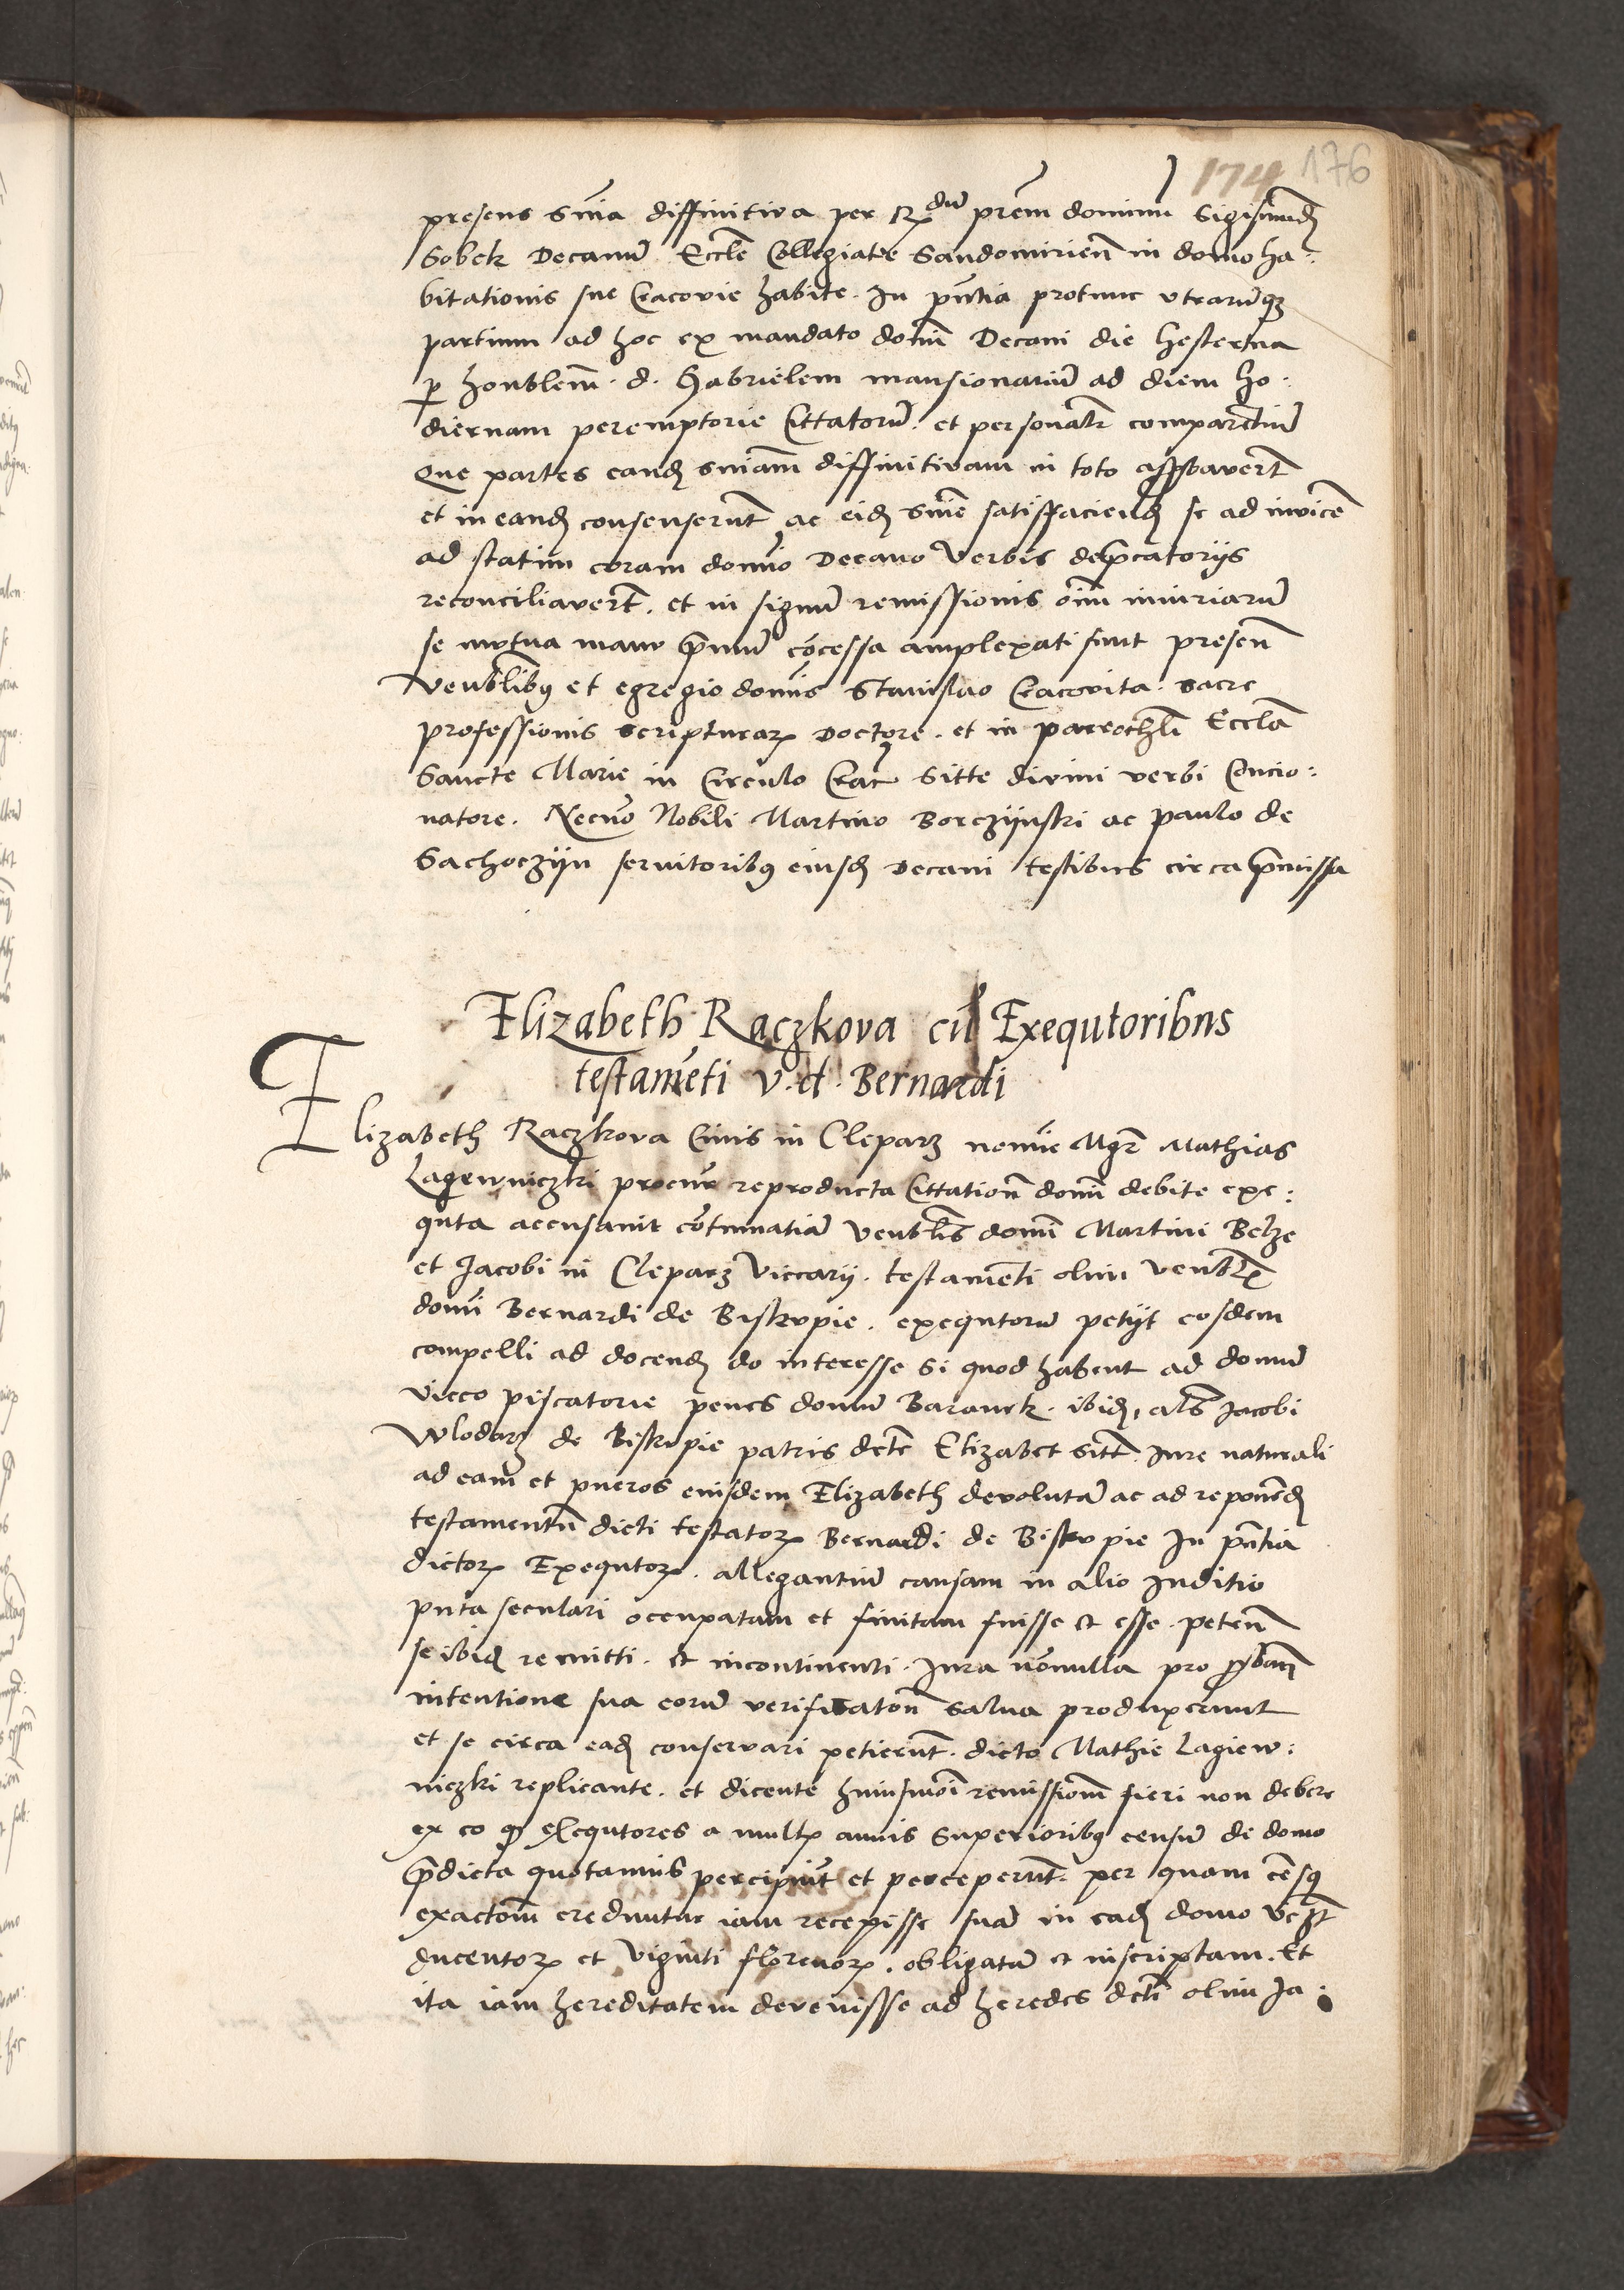 174 176
presens snīa diffinitiva per R.dū prēm dominū Sigismūdū
Sobek Decanū Eccłē Collegiate Sandomirien̄ in domo ha:
bitationis sue Cracovie habite. In pn̄tia protunc utrarūqꝫ
partium ad hoc ex mandato dom̄ Decani die hesterna
ꝑ honblem. d. Gabrielem mansionariū ad diem ho:
diernam peremptorie Cittatorū. et personalr̄ comparen̄tiū
Que partes eandꝫ sniam diffinitivam in toto approbaverūt
et in eandꝫ consenserūt ac eidꝫ snīe satisfaciendꝫ se ad invicē
ad statim coram domīo Decano Verbis deprecatorijs
reconciliaverūt. et in signū remissionis oīm iniuriarū
se mutua manu prīmū cōcessa amplexati sunt presen̄
Venblibꝰ et egregio domīs Stanislao Cracovita. sacre
professionis scripturaꝝ Doctore. et in parrochli Ecclā
Sancte Marie in Circulo Crac̄ Sitte divini verbi Concio:
natore. Necnō Nobili Martino Borczijnski ac Paulo de
Sachoczijn servitoribꝰ eiusdꝫ Decani testibus circa premissa
Elizabeth Raczkova cū Exequtoribus
testamēti v. d. Bernardi
Elizabeth Raczkova Civis in Cleparz nomīe Mgr̄ Mathias
Lagewniczki procur̄ reproducta Cittation̄ dom̄ debite exe:
quta accusavit cōtumatiā Venblis domī Martini Belze
et Jacobi in Cleparz Viccarij. testamenti olim Venblꝭ
domī Bernardi de Biskupie. exequtorū petijt eosdem
compelli ad docendꝫ do interesse si quod habent ad domū
vicco piscatorie penes domū Baranek. ibidꝫ, als̄ Jacobi
Wlodarz de Biskupie patris dcte Elizabet sitt̄. Jure naturali
ad eam et pueros eiusdem Elizabeth devolutā ac ad reponēdꝫ
testamentū dicti testatorꝭ Bernardi de Biskupie In pn̄tia
dictoꝝ Exequtoꝝ. allegantiū causam in alio Juditio
puta seculari occupatam et finitam fuisse et esse. peten̄
se ibidꝫ remitti. et incontinenti. Jura nōnulla pro proban̄
intentione sua eorū verificatōn̄ salva produxerunt
et se circa eadꝫ conservari petierūt. dicto Mathie Lagiew:
niczki replicante. et dicente huiusmōi remissionē fieri non debere
ex eo qꝫ exequtores a multꝭ annis Superioribꝰ censū de domo
predicta quotannis percipiūt et perceperūt. per quam cēsꝰ
exactionē creduntur iam recepisse suā in eadꝫ domo
ducentoꝝ et viginti florenoꝝ. obligatā et inscriptam. Et
ita iam hereditatem devenisse ad heredes dcti olim Ja: